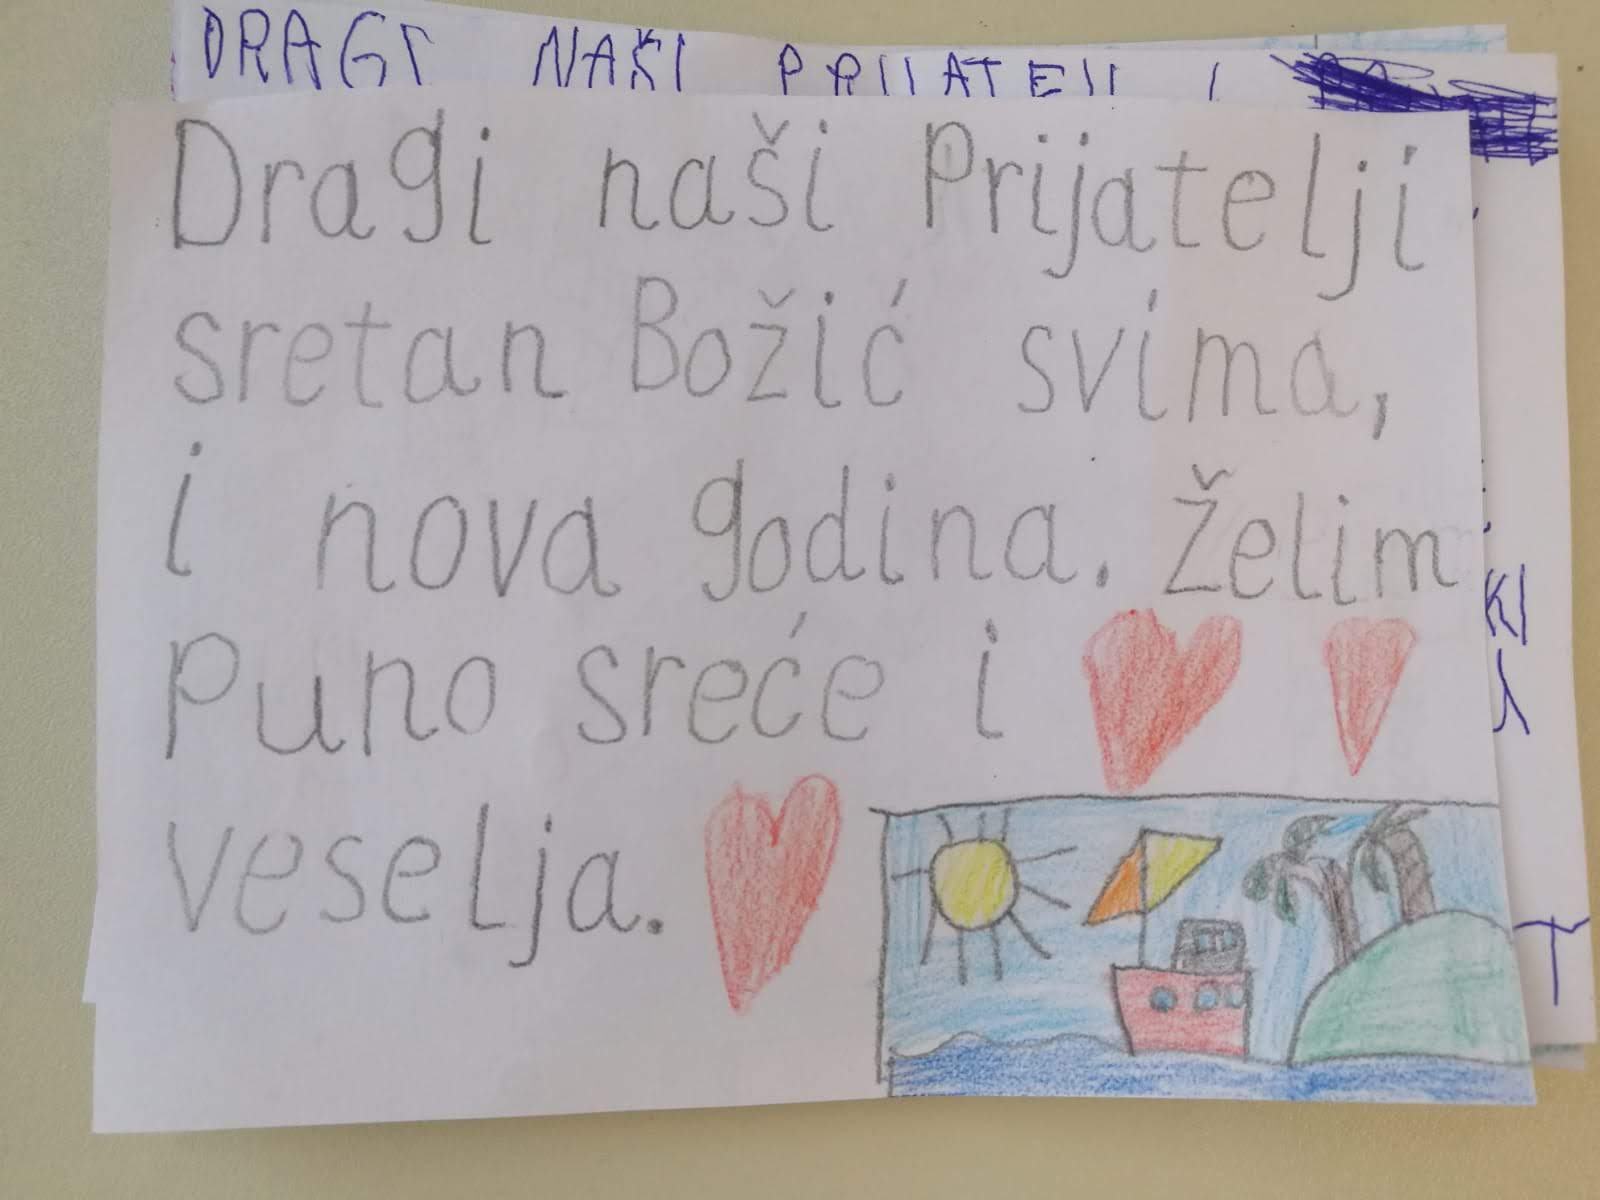 DRAGI NAŠI PRIJATELJI I
Dragi naši Prijatelji
sretan Božić svima,
i nova godina. Želim
Puno sreće i
veselja.